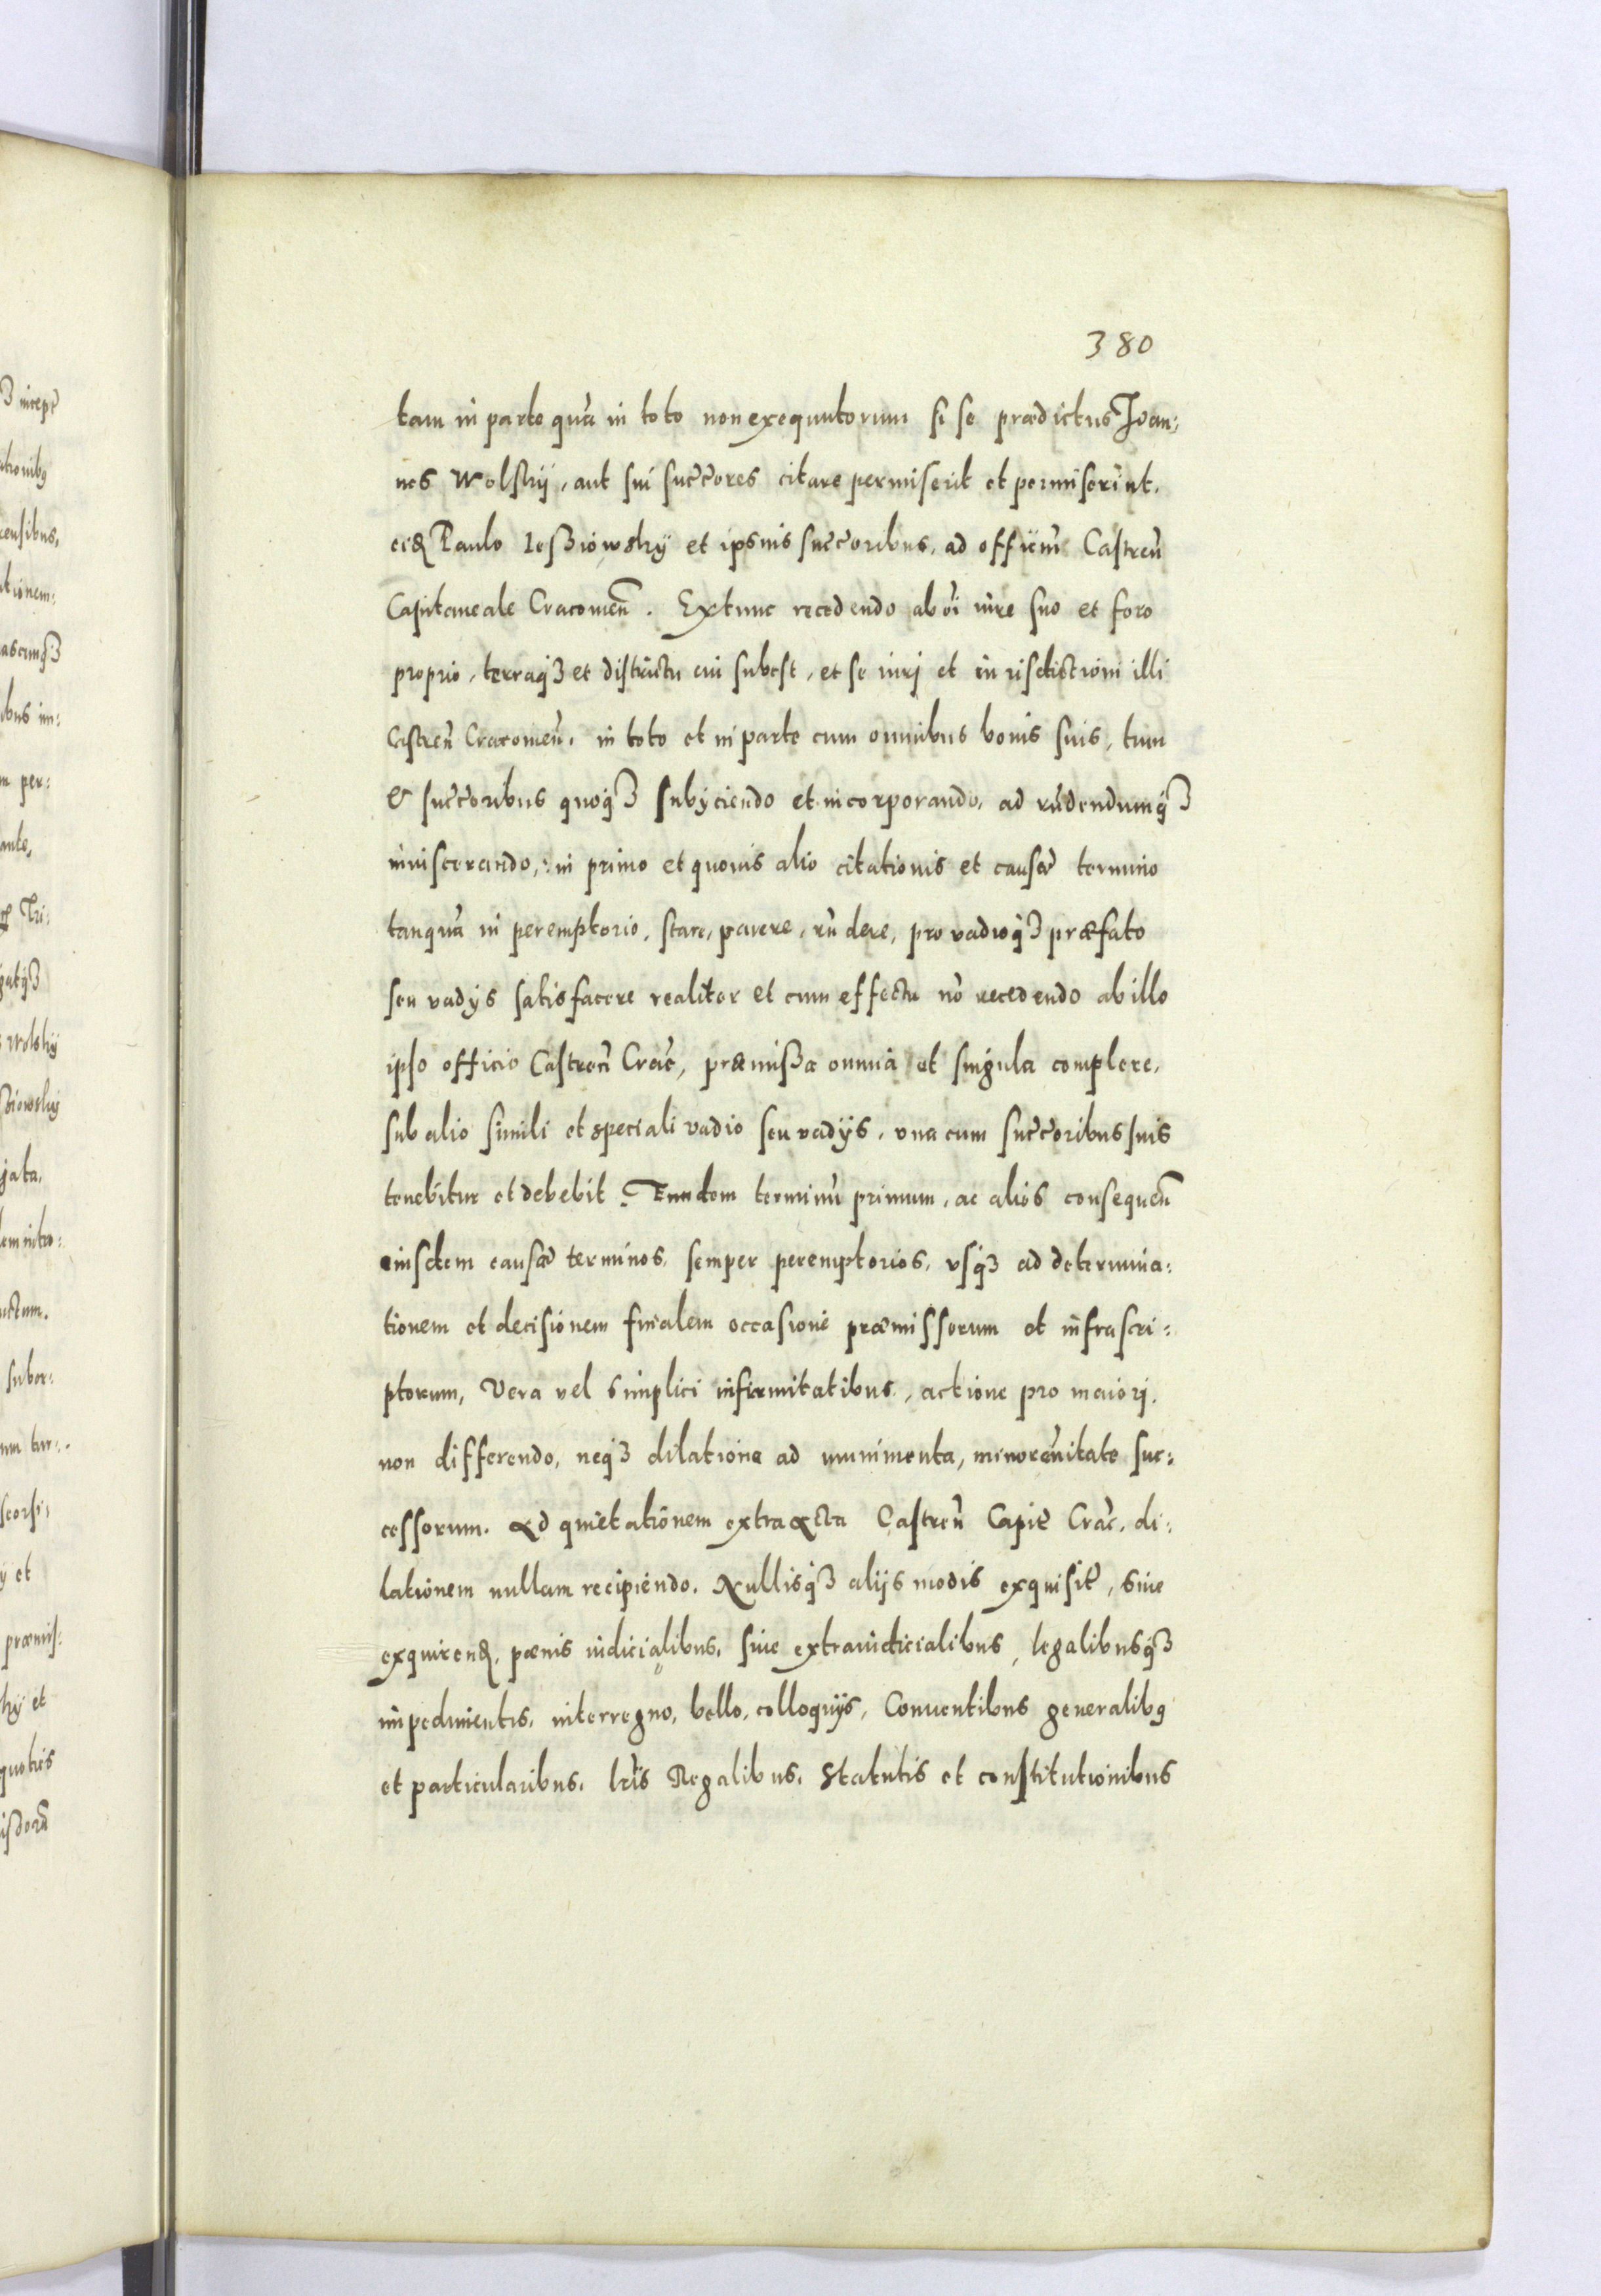 380
tam in parte quã in toto non exequutorum si se prædictus Joan:
nes Wolskÿ, aut sui succ̃ores citare permiserit et permiserint,
Paulo Leßiowskÿ et ipsius succ̃oribus, ad officiũ Castreñ
Capitaneale Cracovieñ. Extunc recedendo ab oĩ iure suo et foro
proprio, terraq3 et districtu cui subest, et se iurj et iurisdictioni illi
Castreñ Cracovieñ, in toto et in parte cum omnibus bonis suis, tum
& succ̃oribus quoq3 subÿciendo et incorporando, ad rñdendumq3
inviscerando, : in primo et quovis alio citationis et causæ termino
tanquã in peremptorio, stare, parere, rñdere, pro vadioq3 præfato
seu vadÿs satisfacere realiter et cum effectu nõ recedendo ab illo
ipso officio Castreñ Crac̃, præmißa omnia et singula complere,
sub alio simili et speciali vadio seu vadÿs, una cum succ̃oribus suis
tenebitur et debebit. Eundem terminũ primum, ac alios consequeñ
eiusdem causæ terminos, semper peremptorios, vsq3 ad determina:
tionem et decisionem finalem occasione præmissorum et infrascri:
ptorum, Vera vel simplici infirmitatibus, actione pro maiorj,
non differendo, neq3 dilatione ad munimenta, minoreñitate suc:
cessorum. Ad quietationem extra Acta Castreñ Capiť Crac̃. di:
lationem nullam recipiendo. Nullisq3 alÿs modis exquisit̃, sive
exquirenđ, pænis iudicialibus, sive extraiudicialibus, legalibusq3
impedimentis, interregno, bello, colloquÿs, Conventibus generalib9
et particularibus, lr̃is Regalibus, Statutis et constitutionibus